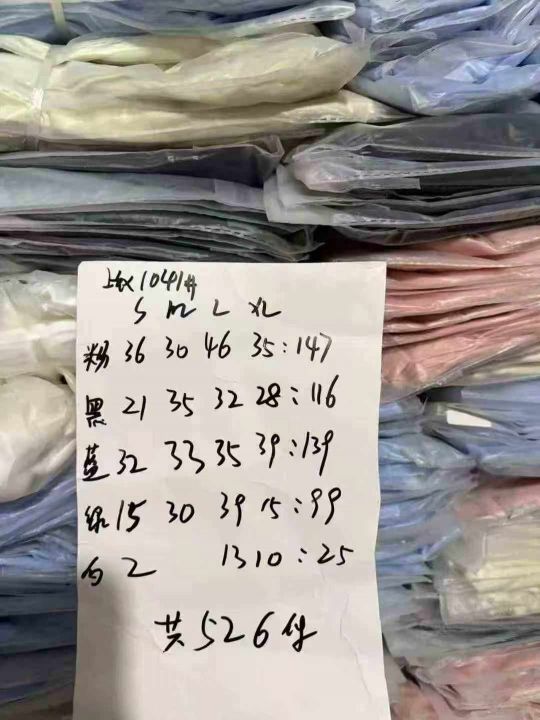 1041#
S M L XL
粉 36 30 46 35:147
黑 21 35 32 28:116
蓝 32 33 35 39:139
绿 15 30 39 15:99
白 2 13 10:25
共526件